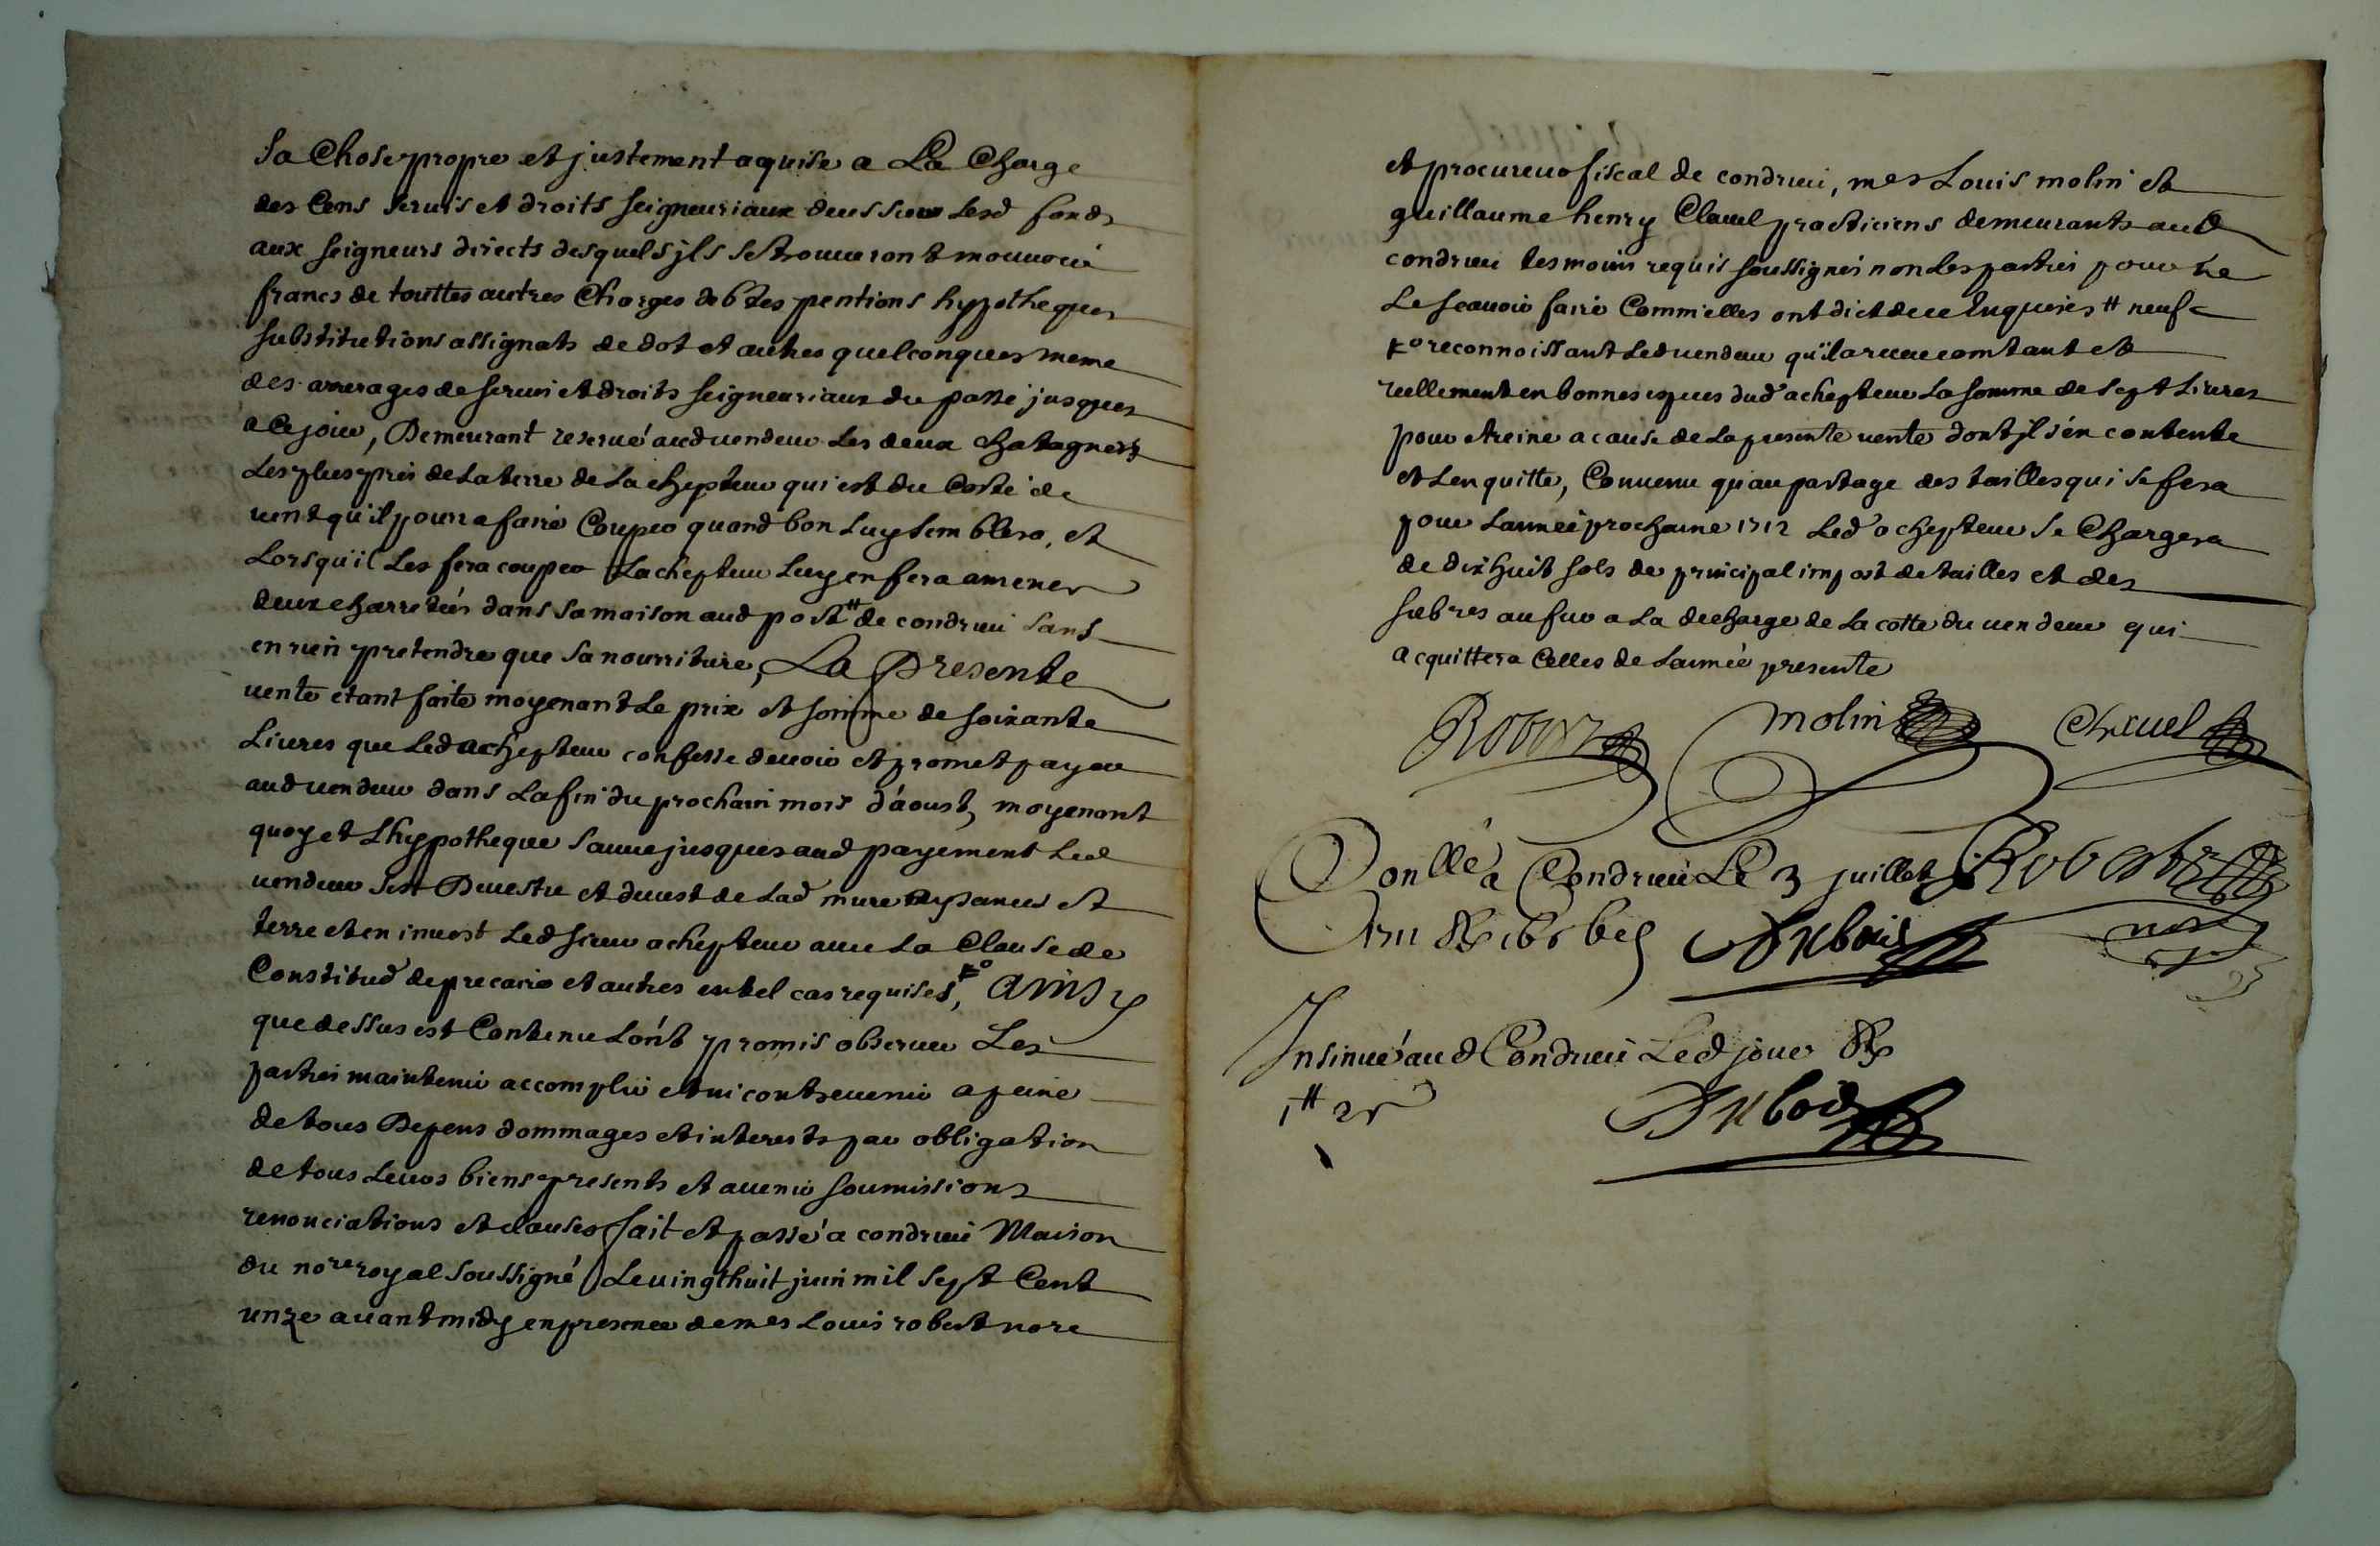 sa Chose propre et justement aquise a La Charge
des Cens servis et droits seigneuriaux deus sur Lesd fonds
aux seigneurs directs desquels jls se trouveront mouvoir
francs de touttes autres Charges debtes pentions hypotheques
substitutions assignats de dot et autres quelconques meme
des arrerages de servis et droits seigneuriaux du passé jusques
a Ce jour, Demeurant reservé aud vendeur Les deux chatagners
Les plus pres de La terre de Lachepteur qui est du Costé de
vent qu'il pourra faire Couper quand bon Luy semblera, et
Lorsqu'il Les fera couper Lachepteur Luy en fera amener
deux charretées dans sa maison aud port # de condrieu sans
en rien pretendre que sa nourriture, La presente
vente etant faite moyenant Le prix et somme de soixante
Livres que Led achepteur confesse devoir et promet payer
aud vendeur dans La fin du prochain mois d'aoust, moyenant
quoy et Lhypotheque sauve jusques aud payement Led
vendeur s'est Devestu et devest de Lad mure et
terre et en invest Led sieur achepteur avec La Clause de
Constitud de precaire et autres en tel cas requises, Fo ainsy
que dessus est Contenu Lont promis observer Les
parties maintenir accomplir et ni contrevenir a peine
de tous Depens dommages et interests par obligation
de tous Leurs biens presents et avenir soumissions
renonciations et clauses fait et passé a condrieu Maison
du nore royal soussigné Le vingt huit juin mil sept Cent
unze avant midy en presence de mes Louis robert nore
et procureur fiscal de condrieu, mes Louis molin et
guillaume henry Clavel practiciens demeurants aud
condrieu tesmoins requis soussignés non Les parties pour ne
Le scavoir faire Comm'elles ont dict de ce Enquises # neuf
Fo reconnoissant Led vendeur qu'il a receu comtant et
reellement en bonnes especes dud achepteur La somme de sept Livres
pour etreine a cause de La presente vente dont jl s'en contente
et Len quitte, Convenu qu'au partage des tailles qui se fera
pour Lannée prochaine 1712 Led achepteur se Chargera
de dix huit sols de principal impost de tailles et des
a La decharge de La cotte du vendeur qui
acquittera Celles de Lannée presente
Robert molin Clavel
Conllé a Condrieu Le 3 juillet Robert
1711 Dubois nore
Insinué aud Condrieu Led jour
Dubois